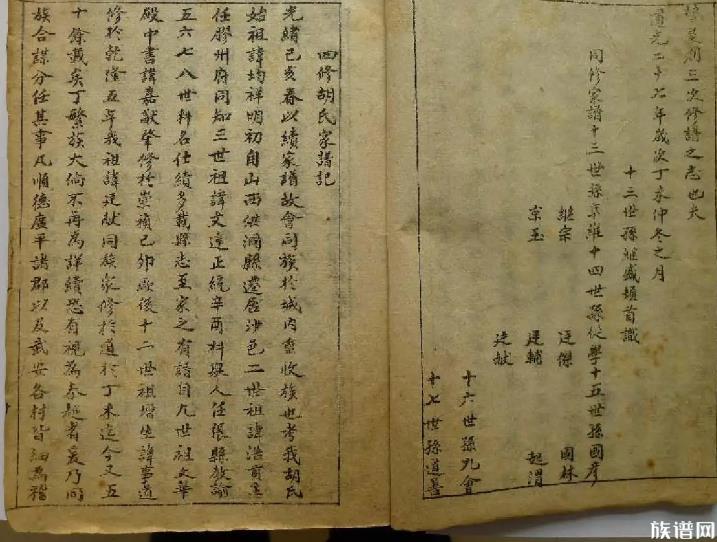 三次修譜之志也夫
道光二十七年歲次丁未仲冬之月
十三世孫繼盛頓首識
同修家譜十三世孫景維十四世孫從學十五世孫國彥
繼宗 廷傑 國林
京玉 廷輔 起渭
廷献
十六世孫孔會
十七世孫道善
四修胡氏家譜記
光緒己亥春以續家譜故會同族於城内重收族也考我胡氏
始祖諱均祥明初自山西洪洞縣遷居沙邑二世祖諱浩貢生
任膠州府同知三世祖諱文達正統辛酉科舉人任張縣教諭
五六七八世科名仕績多載縣志至家之有譜自九世祖文華
殿中書諱嘉猷肇修於崇禎己卯厥後十二世祖增生諱事道
修於乾隆五年我祖諱廷献同族家修於道於丁未迄今又五
十餘載矣丁繁族大倘不再為詳續恐有視為秦越者爰乃同
族合謀分任其事凡順德廣平諸郡以及武安各村皆細為稽
族谱网